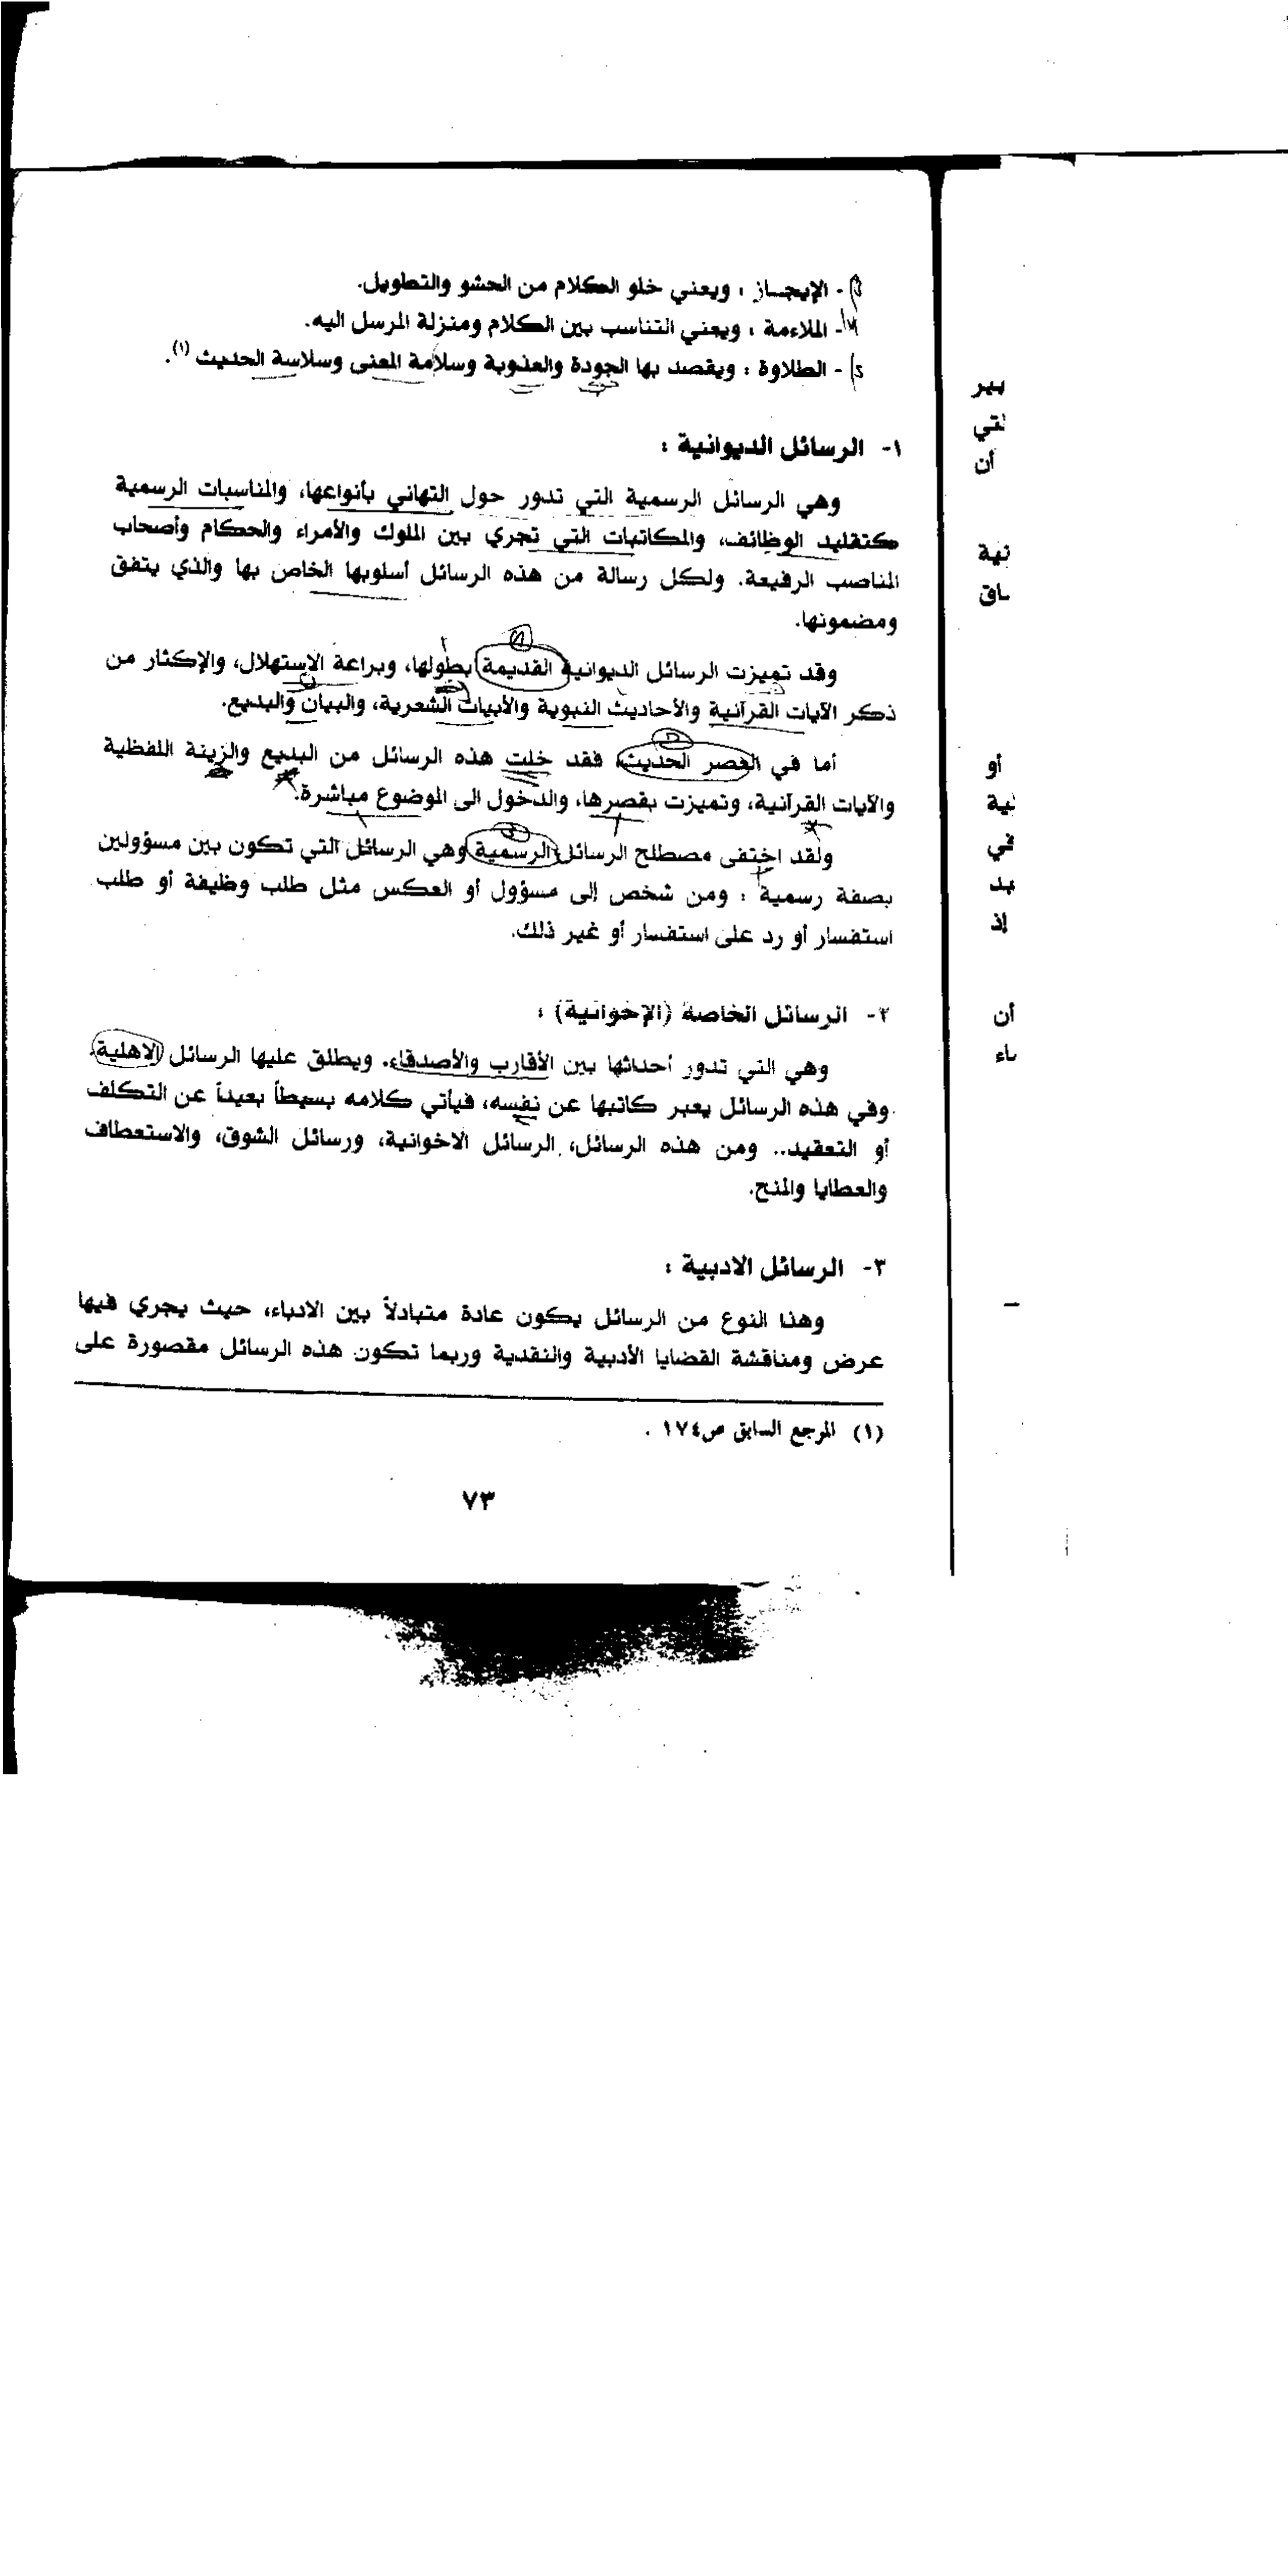 - الإيجاز : ويعني خلو الكلام من الحشو والتطويل.
- الملاءمة : ويعني التناسب بين الكلام ومنزلة المرسل اليه.
- الطلاوة : ويقصد بها الجودة والعذوبة وسلامة المعنى وسلاسة الحديث (١).
١- الرسائل الديوانية :
وهي الرسائل الرسمية التي تدور حول التهاني بأنواعها، والمناسبات الرسمية
كتقليد الوظائف، والمكاتبات التي تجري بين الملوك والأمراء والحكام وأصحاب
المناصب الرفيعة. ولكل رسالة من هذه الرسائل أسلوبها الخاص بها والذي يتفق
ومضمونها.
وقد تميزت الرسائل الديوانية القديمة بطولها، وبراعة الإستهلال، والإكثار من
ذكر الآيات القرآنية والأحاديث النبوية والأبيات الشعرية، والبيان والبديع.
أما في العصر الحديث، فقد خلت هذه الرسائل من البديع والزينة اللفظية
والآيات القرآنية، وتميزت بقصرها، والدخول الى الموضوع مباشرة.
ولقد اختفى مصطلح الرسائل الرسمية وهي الرسائل التي تكون بين مسؤولين
بصفة رسمية : ومن شخص إلى مسؤول أو العكس مثل طلب وظيفة أو طلب
استفسار أو رد على استفسار أو غير ذلك.
٢- الرسائل الخاصة (الإخوانية) :
وهي التي تدور أحداثها بين الأقارب والأصدقاء. ويطلق عليها الرسائل الاهلية.
وفي هذه الرسائل يعبر كاتبها عن نفسه، فيأتي كلامه بسيطاً بعيداً عن التكلف
أو التعقيد.. ومن هذه الرسائل، الرسائل الاخوانية، ورسائل الشوق، والاستعطاف
والعطايا والمنح.
٣- الرسائل الادبية :
وهذا النوع من الرسائل يكون عادة متبادلاً بين الادباء، حيث يجري فيها
عرض ومناقشة القضايا الأدبية والنقدية وربما تكون هذه الرسائل مقصورة على
(١) المرجع السابق ص١٧٤ .
٧٣
أن
أو
إذ
أن